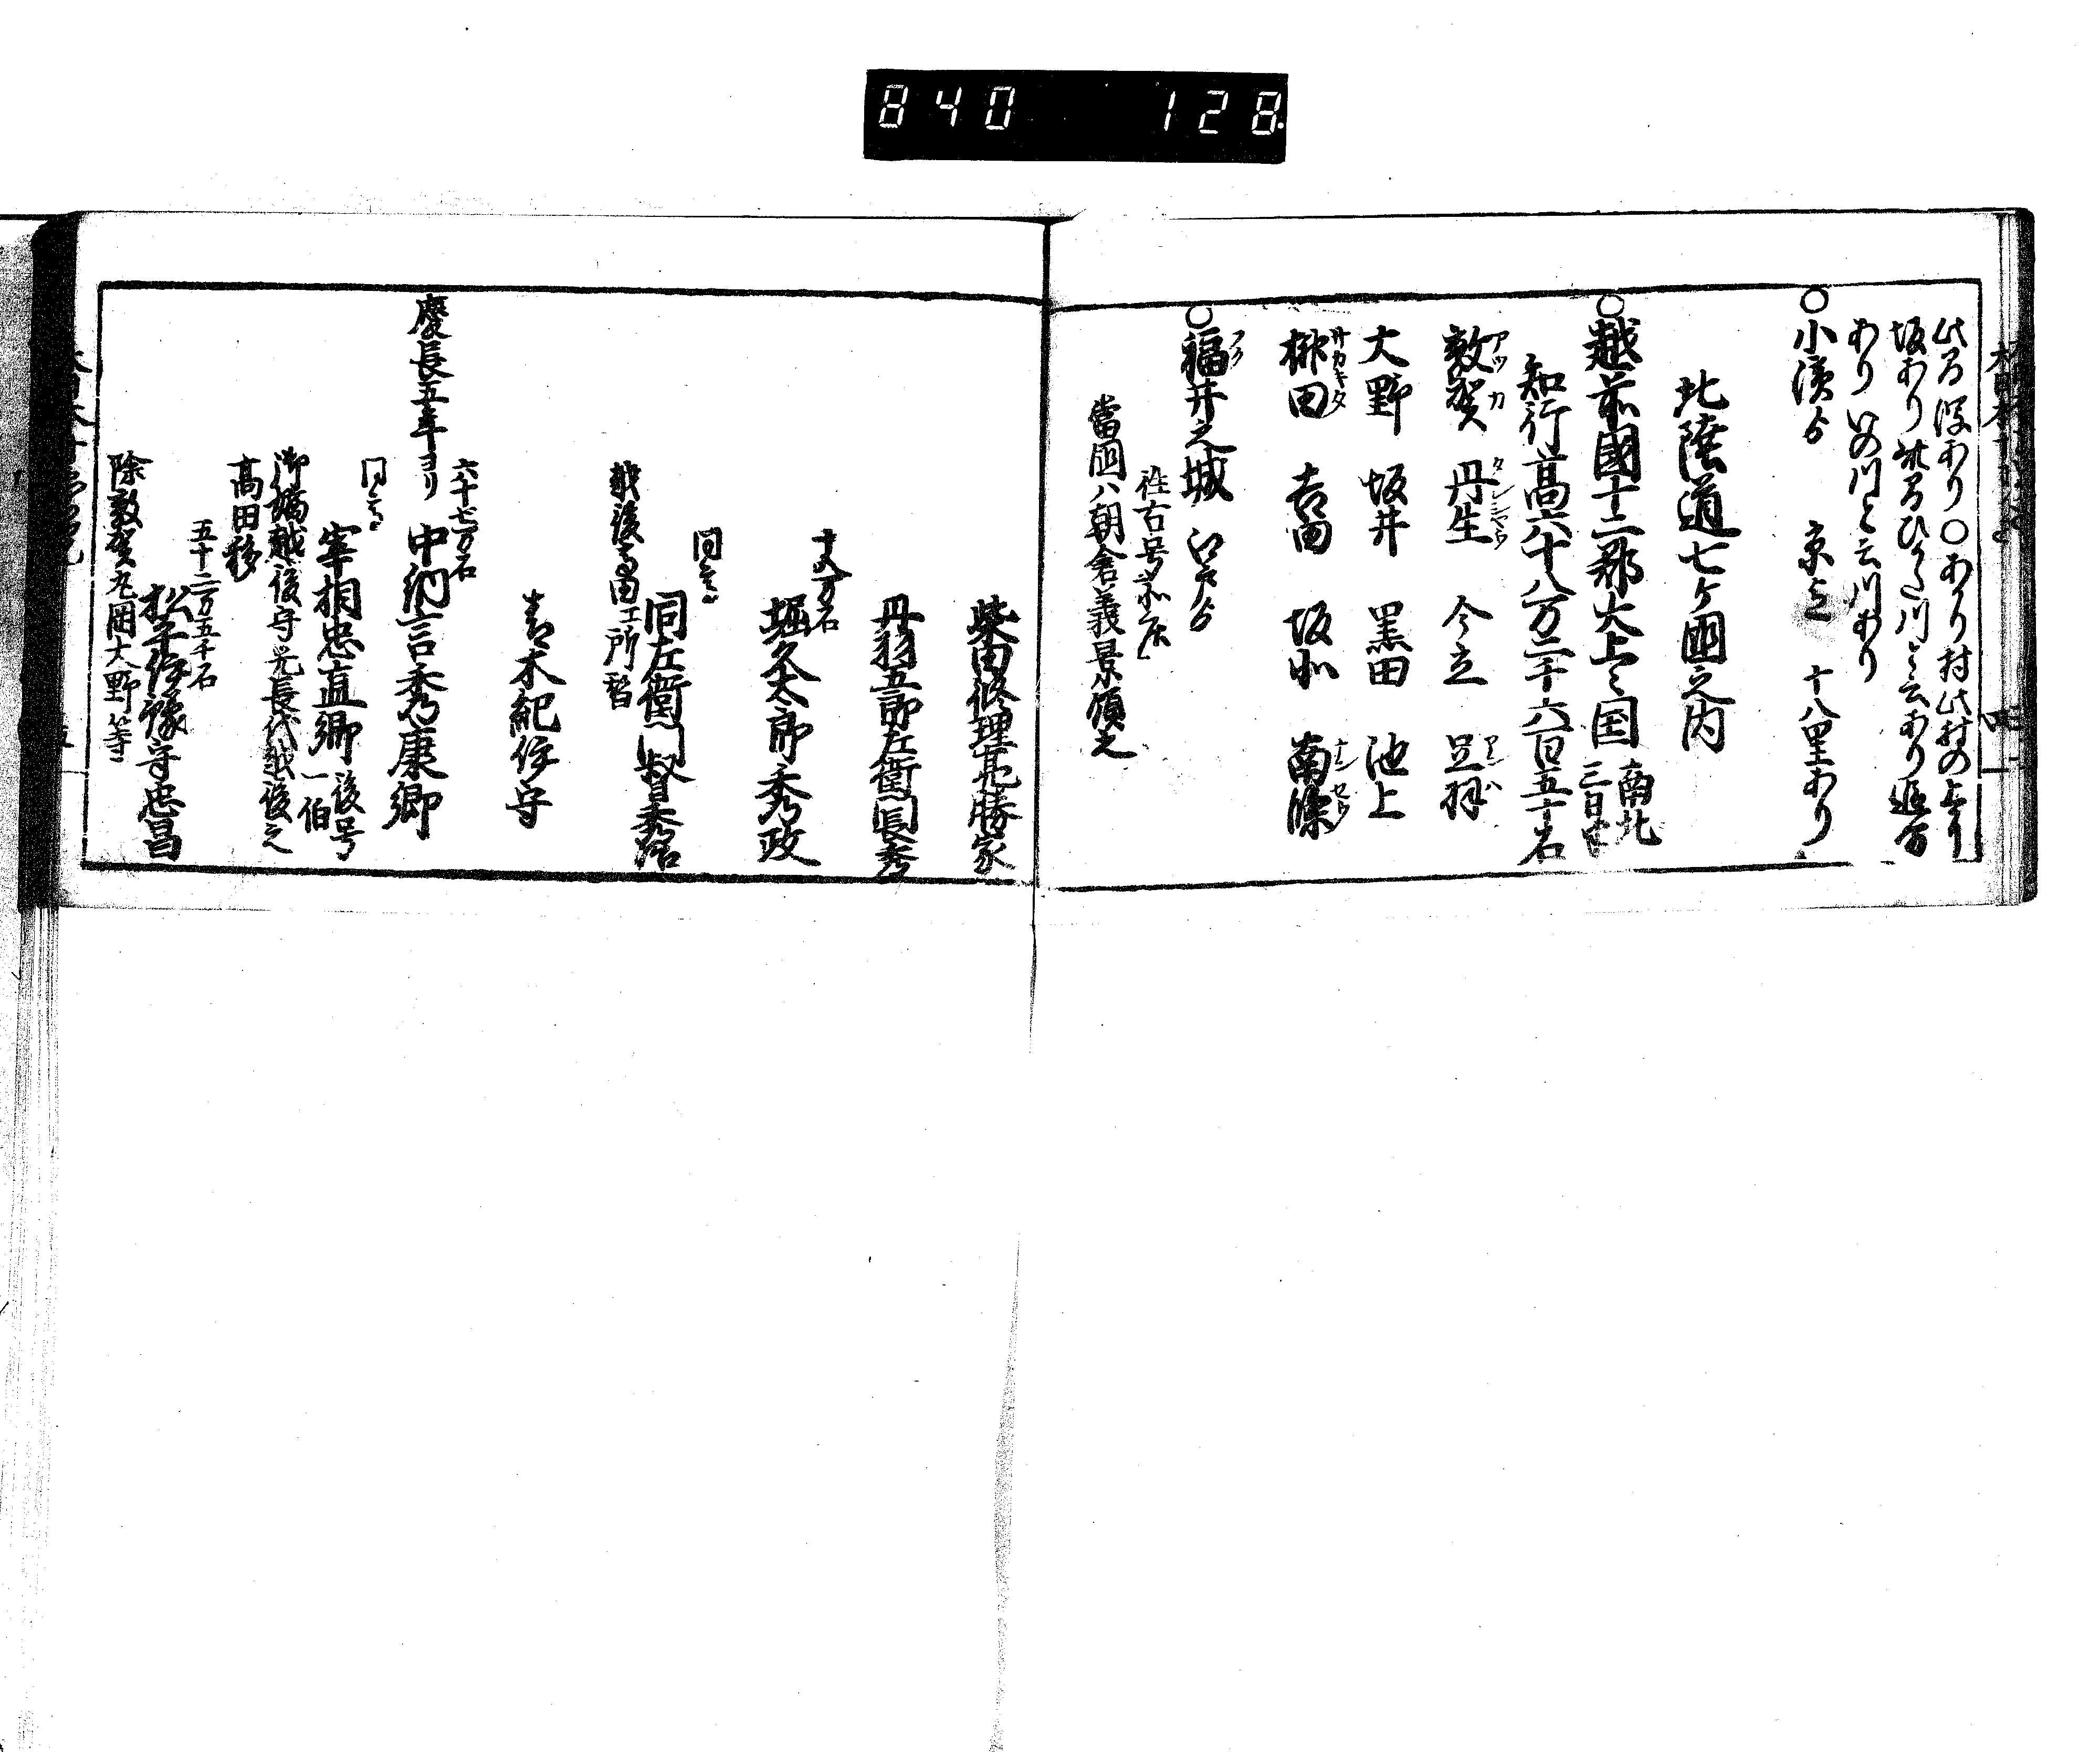 840 128
此間坂あり〇あり村此村の上り
坂あり此間ひくた川と云あり追分
あり いの川と云川あり
〇小濱ゟ 京迄 十八里あり
北陸道七ヶ國之内
〇越前國十二郡大上々国 南北三日半
知行高六十八万二千六百五十石
敦賀 丹生 今立 足羽
アツカ タンシヤウ アスハ
大野 坂井 黒田 池上
榊田 吉田 坂北 南條
サカキタ ナンセウ
〇福井之城 江戸ゟ
フク
往古号北庄
當国ハ朝倉義景領之
柴田修理亮勝家
丹羽五郎左衛門長秀
十八万石
堀久太郎秀政
同高
同左衛門督秀治
越後高田エ所替
青木紀伊守
六十七万石
慶長五年ヨリ 中納言秀康卿
同高
宰相忠直卿 後号一伯
御嫡越後守光長代越後之
高田移
五十二万五千石
松平伊豫守忠昌
除敦賀丸岡大野等